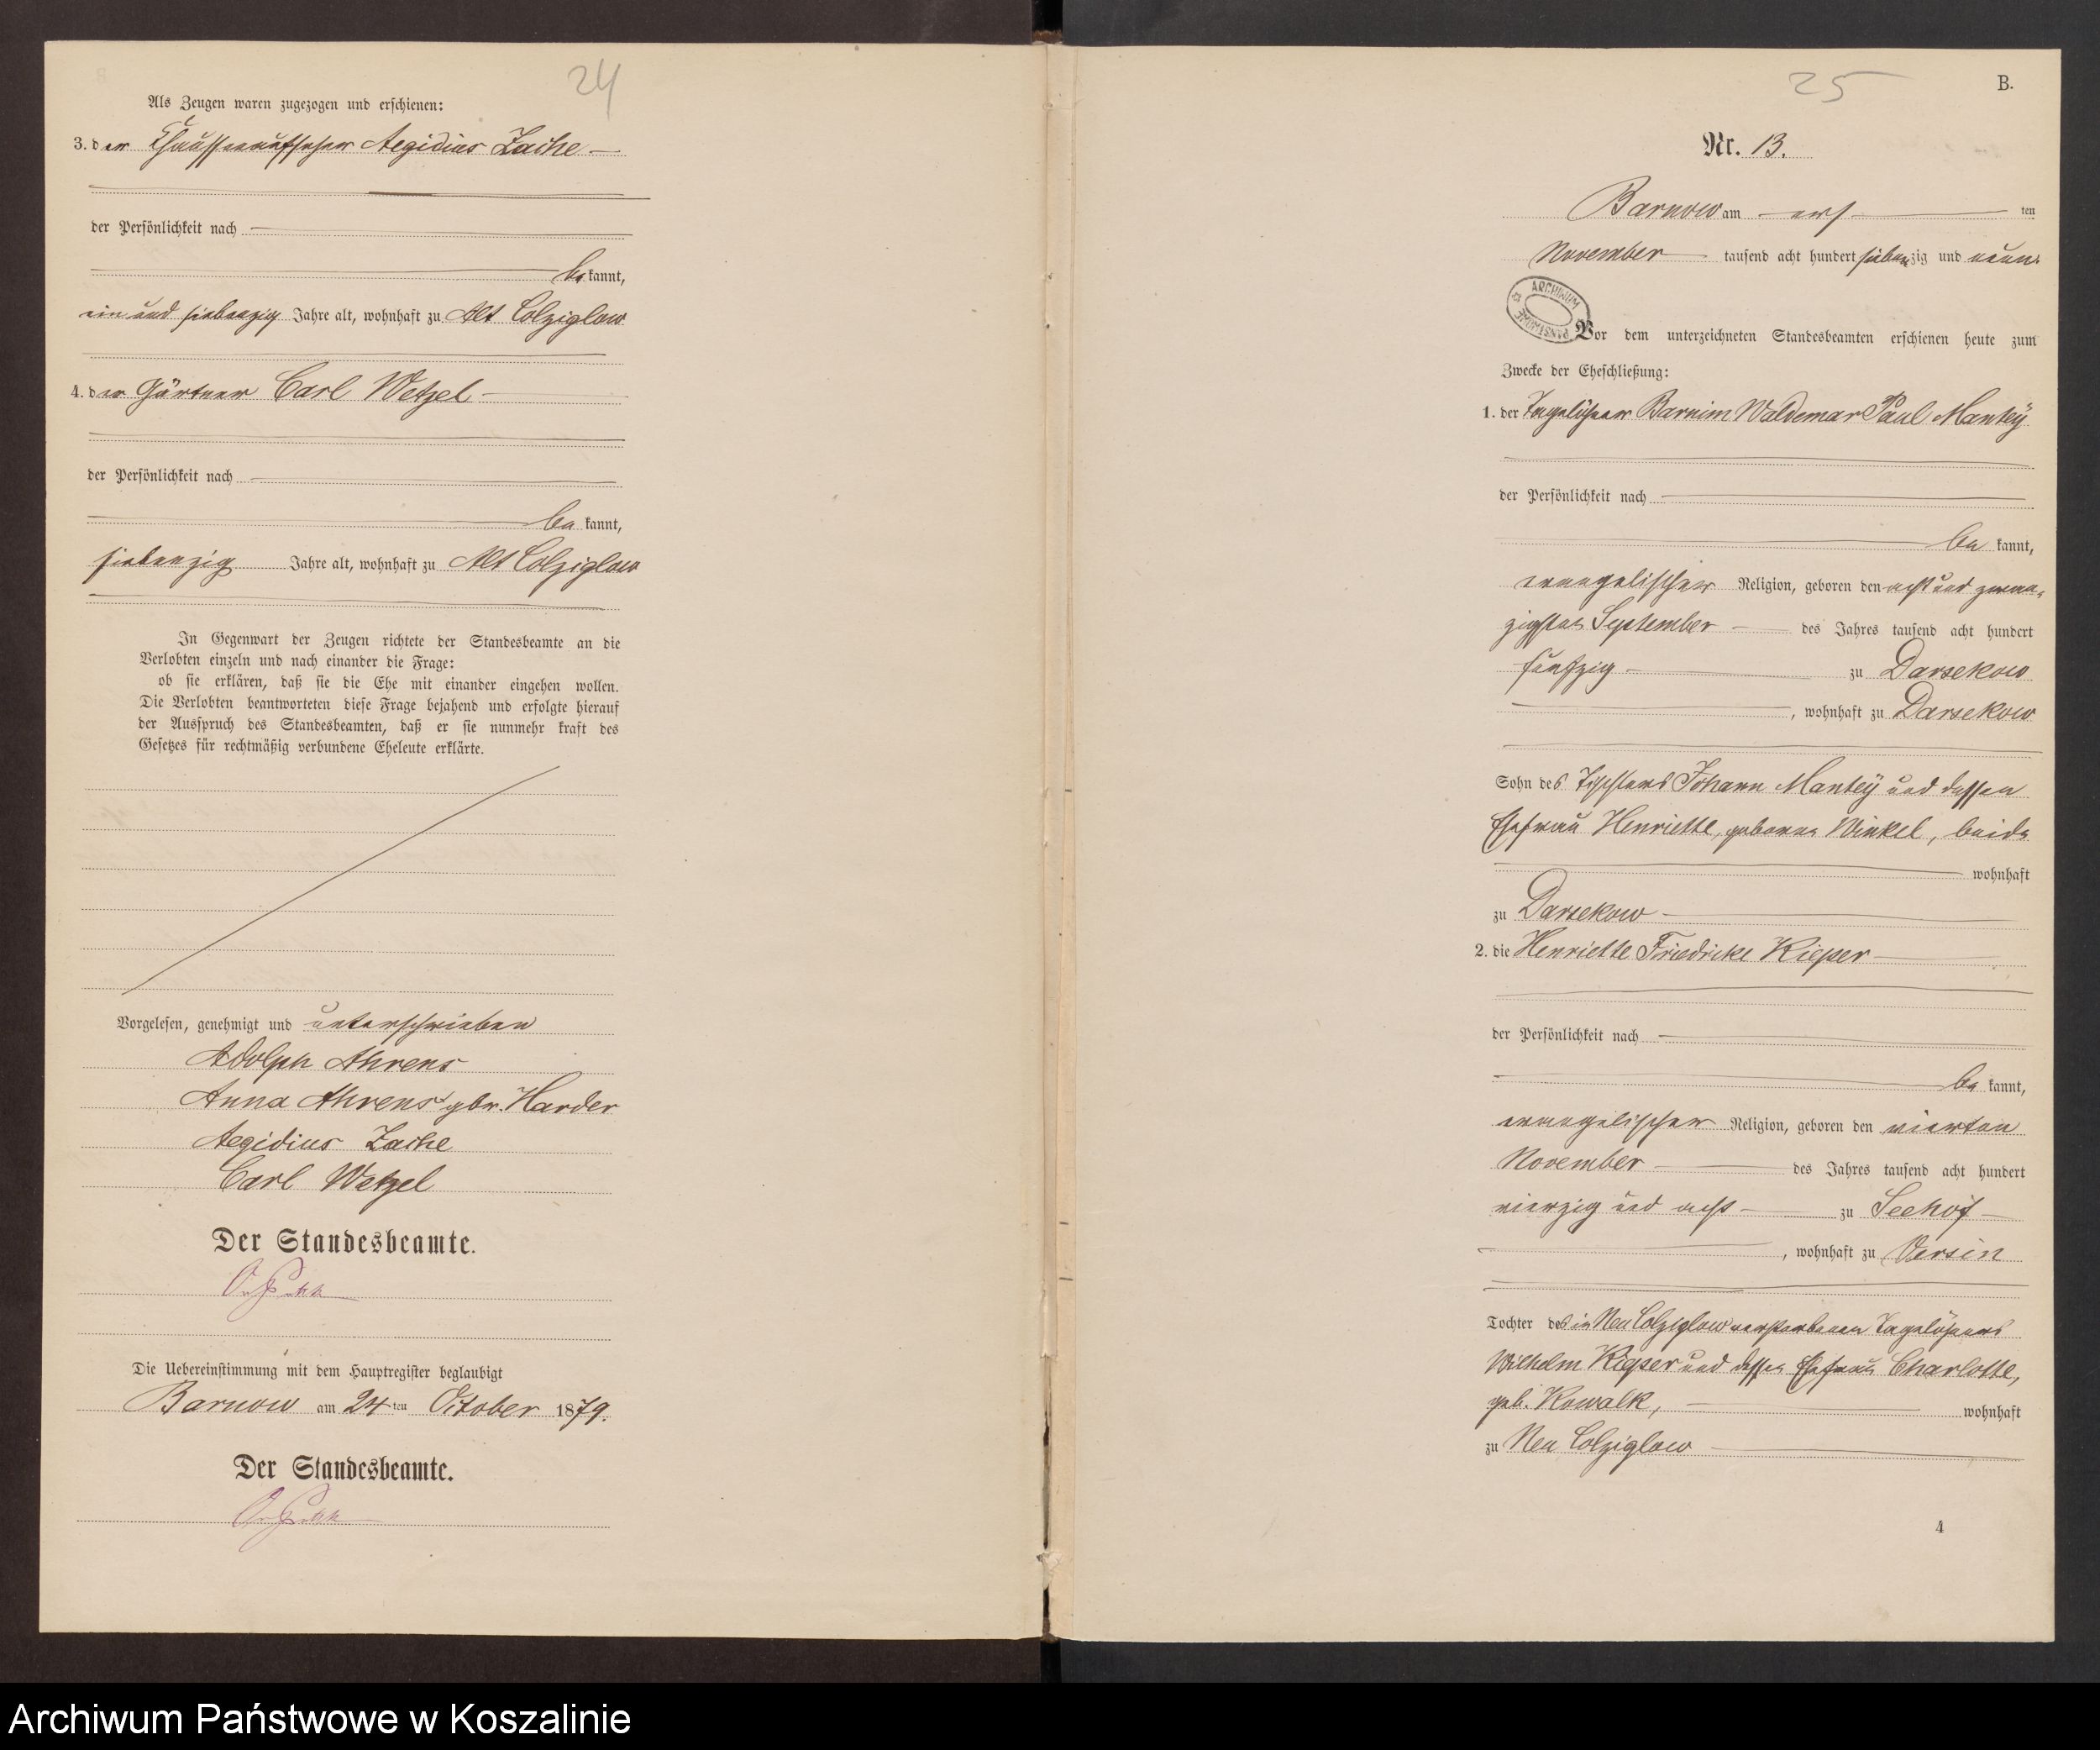 24
Als Zeugen waren zugezogen und erschienen:
3. der Chausseeaufseher Aegidius Zache
der Persönlichkeit nach
bekannt,
ein und siebenzig Jahre alt, wohnhaft zu Alt Colziglow
4. der Gärtner Carl Wetzel
der Persönlichkeit nach
bekannt,
siebenzig Jahre alt, wohnhaft zu Alt Colziglow
In Gegenwart der Zeugen richtete der Standesbeamte an die
Verlobten einzeln und nach einander die Frage:
ob sie erklären, daß sie die Ehe mit einander eingehen wollen.
Die Verlobten beantworteten diese Frage bejahend und erfolgte hierauf
der Ausspruch des Standesbeamten, daß er sie nunmehr kraft des
Gesetzes für rechtmäßig verbundene Eheleute erklärte.
Vorgelesen, genehmigt und unterschrieben
Adolph Ahrens
Anna Ahrens gbr. Harder
Aegidius Zache
Carl Wetzel
Der Standesbeamte.
Die Uebereinstimmung mit dem Hauptregister beglaubigt
Barnow am 24 ten October 1879.
Der Standesbeamte.
25
B.
Nr. 13.
Barnow am ten
November tausend acht hundert siebenzig und neun.
ARCHIWUM PAŃSTWOWE
Vor dem unterzeichneten Standesbeamten erschienen heute zum
Zwecke der Eheschließung:
1. der Tagelöhner Barnim Waldemar Paul Mantey
der Persönlichkeit nach
bekannt,
evangelischer Religion, geboren den acht und zwan-
zigsten September des Jahres tausend acht hundert
fünfzig zu Darsekow
, wohnhaft zu Darsekow
Sohn des Tischlers Johann Mantey und dessen
Ehefrau Henriette, geborene Winkel, beide
wohnhaft
zu Darsekow
2. die Henriette Friedricke Kieper
der Persönlichkeit nach
bekannt,
evangelischer Religion, geboren den vierten
November des Jahres tausend acht hundert
vierzig und acht zu Seehof
, wohnhaft zu Versin
Tochter des in Neu Colziglow verstorbenen Tagelöhners
Wilhelm Kieper und dessen Ehefrau Charlotte,
geb. Kowalk, wohnhaft
zu Neu Colziglow
4
Archiwum Państwowe w Koszalinie